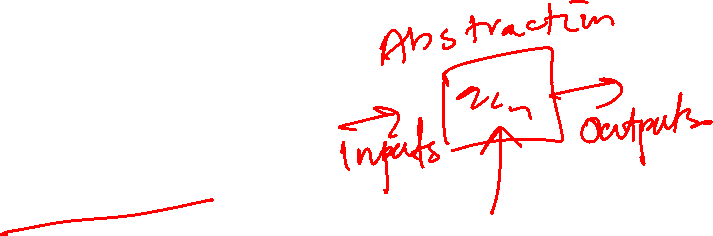 Abstraction
inputs
outputs